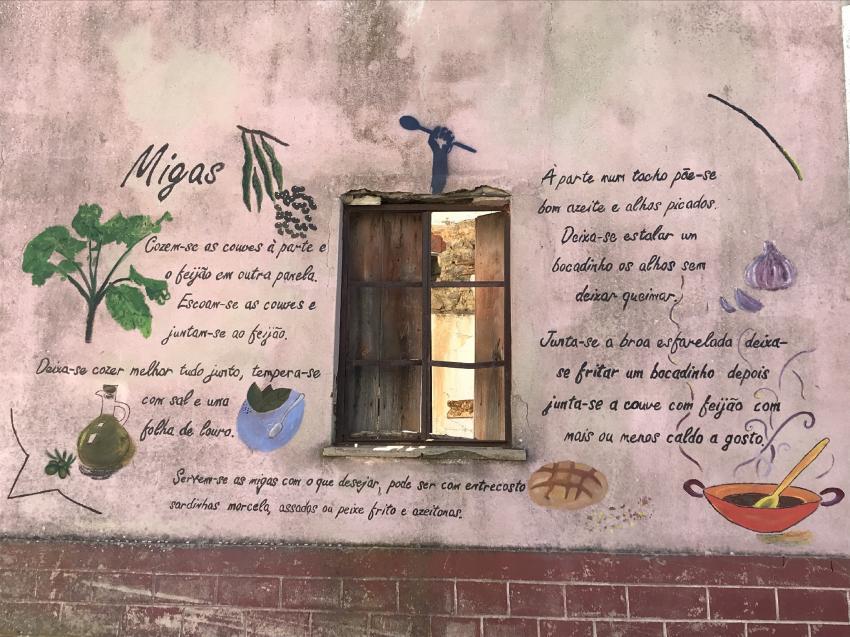 Migas
Cozem-se as couves à parte e
o feijão em outra panela.
Escoam-se as couves e
juntam-se ao feijão.
Deixa-se cozer melhor tudo junto, tempera-se
com sal e uma
folha de louro.
À parte num tacho põe-se
bom azeite e alhos picados.
Deixa-se estalar un
bocadinho os alhos sem
deixar queimar.
Junta-se a broa esfarelada deixa-
se fritar um bocadinho depois
junta-se a couve com feijão com
mais ou menos caldo a gosto.
Servem-se as migas com o que desejar, pode ser com entrecosto
sardinhas morcela, assados ou peixe frito e azeitonas.